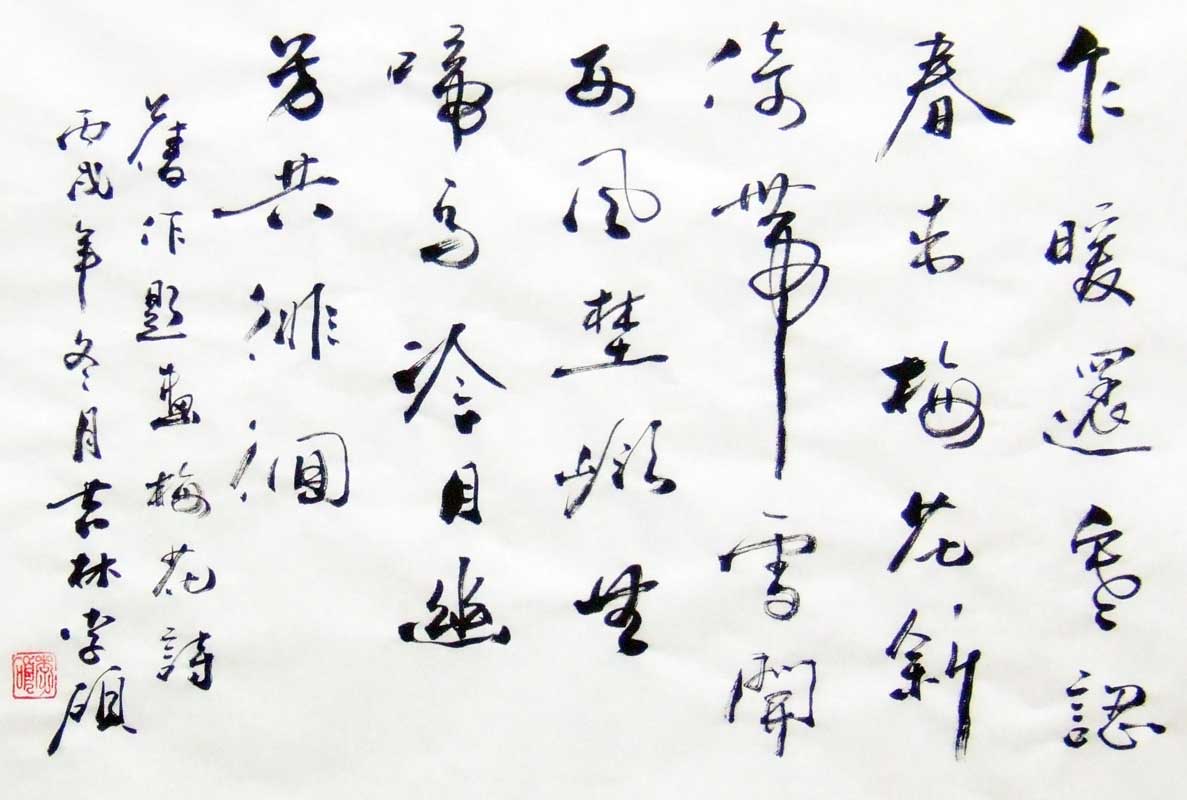 乍暖還寒認
春来梅花斜
倚帶雪開
西風埜嶺無
啼鳥冷月幽
芳共徘徊
舊作題畫梅花詩
丙戌年冬月吉林李碩